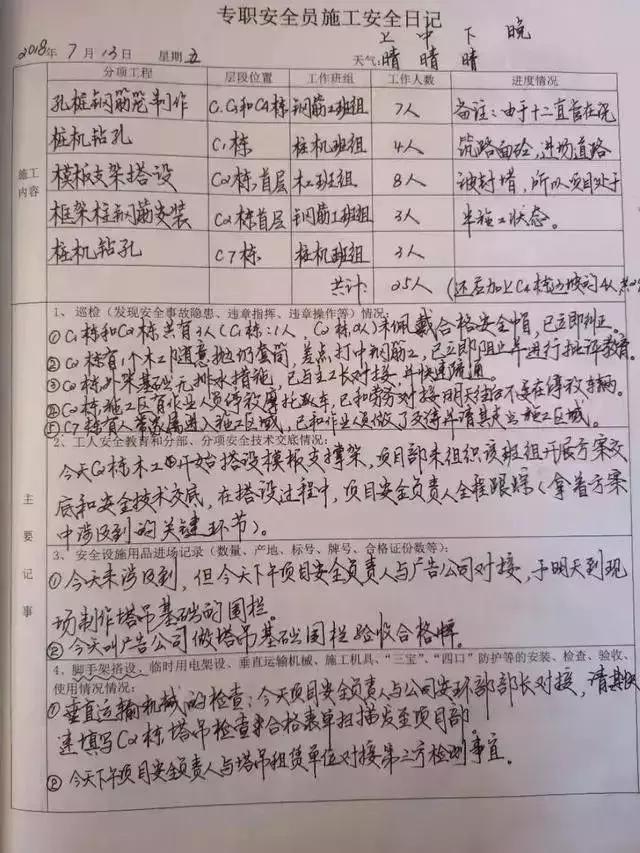 专职安全员施工安全日记
上 中 下 晚
2018年 7月 13日 星期五 天气: 晴 晴 晴
分项工程 层段位置 工作班组 工作人数 进度情况
施工内容
孔桩钢筋笼制作 钢筋工班组 7人 备注:由于十二直营在浇
桩机钻孔 C1栋 桩机班组 4人 筑路面砼,进场道路
模板支架搭设 C2栋,首层 木工班组 8人 被封堵,所以项目处于
框架柱钢筋安装 C2栋首层 钢筋工班组 3人 半施工状态。
桩机钻孔 C7栋 桩机班组 3人
共计: 25人
主要记事
1、巡检(发现安全事故隐患、违章指挥、违章操作等)情况:
① C1栋和C2栋共有3人(C1栋:1人,C2栋2人)未佩戴合格安全帽,已立即纠正。
② C2栋有1个木工随意抛扔套筒,差点打中钢筋工,已立即阻止并进行批评教育。
③ C2栋外架基础无排水措施,已与主工长对接,并快速疏通。
④ C2栋施工区有作业人员停放摩托车,已和劳务对接明天往后不要在停放车辆。
⑤ C7栋有人带家属进入施工区域,已和作业人员做了交待并请其走出施工区域。
2、工人安全教育和分部、分项安全技术交底情况:
今天C2栋木工开始搭设模板支撑架,项目部未组织该班组开展方案交
底和安全技术交底,在搭设过程中,项目安全负责人全程跟踪(拿着方案
中涉及到的关键环节)。
3、安全设施用品进场记录(数量、产地、标号、牌号、合格证份数等):
① 今天未涉及到,但今天下午项目安全负责人与广告公司对接,于明天到现
场制作塔吊基础的围栏。
② 今天叫广告公司做塔吊基础围栏验收合格牌。
4、脚手架搭设、临时用电架设、垂直运输机械、施工机具、“三宝”、“四口”防护等的安装、检查、验收、
使用情况情况:
① 垂直运输机械的检查:今天项目安全负责人与公司安环部部长对接,请其快
速填写C2栋塔吊检查合格表单扫描发至项目部。
② 今天下午项目安全负责人与塔吊租赁单位对接第三方检测事宜。